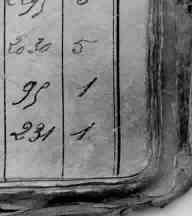 2030 5
95 1
231 1